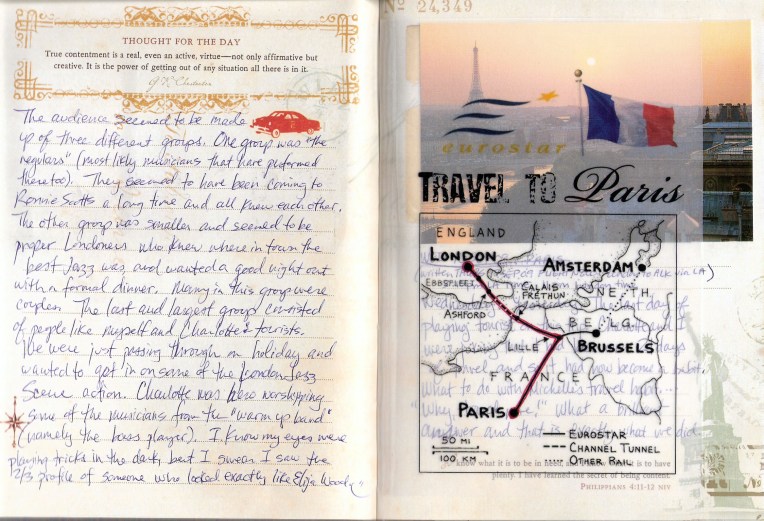 THOUGHT FOR THE DAY
True contentment is a real, even an active, virtue—not only affirmative but
creative. It is the power of getting out of any situation all there is in it.
The audience seemed to be made
up of three different groups. One group was "the
regulars" (most likely musicians that have preformed
there too). They seemed to have been coming to
Ronnie Scotts a long time and all knew each other.
The other group was smaller and seemed to be
proper Londoners who knew where in town the
best Jazz was and wanted a good night out
with a formal dinner. Many in this group were
couples. The last and largest group consisted
of people like myself and Charlotte: tourists.
We were just passing through on holiday and
wanted to get in on some of the London Jazz
Scene action. Charlotte was hero worshipping
some of the musicians from the "warm up band"
(namely the bass player). I know my eyes were
playing tricks in the dark but I swear I saw the
2/3 profile of someone who looked exactly like Elija Wood
Nº 24,349
eurostar
TRAVEL TO Paris
ENGLAND
LONDON
AMSTERDAM
EBBSFLEET
CALAIS
FRÉTHUN
NETH.
ASHFORD
BELG.
LILLE
BRUSSELS
FRANCE
PARIS
50 MI
100 KM
EUROSTAR
CHANNEL TUNNEL
OTHER RAIL
via LA)
last day of
playing tourist
and I
travel and
had now become a
what to do with Michelle's travel
"Why
What a
answer and that is exactly what we did
know what it is to be in need,
it is to have
plenty. I have learned the secret of being content.
PHILIPPIANS 4:11-12 NIV